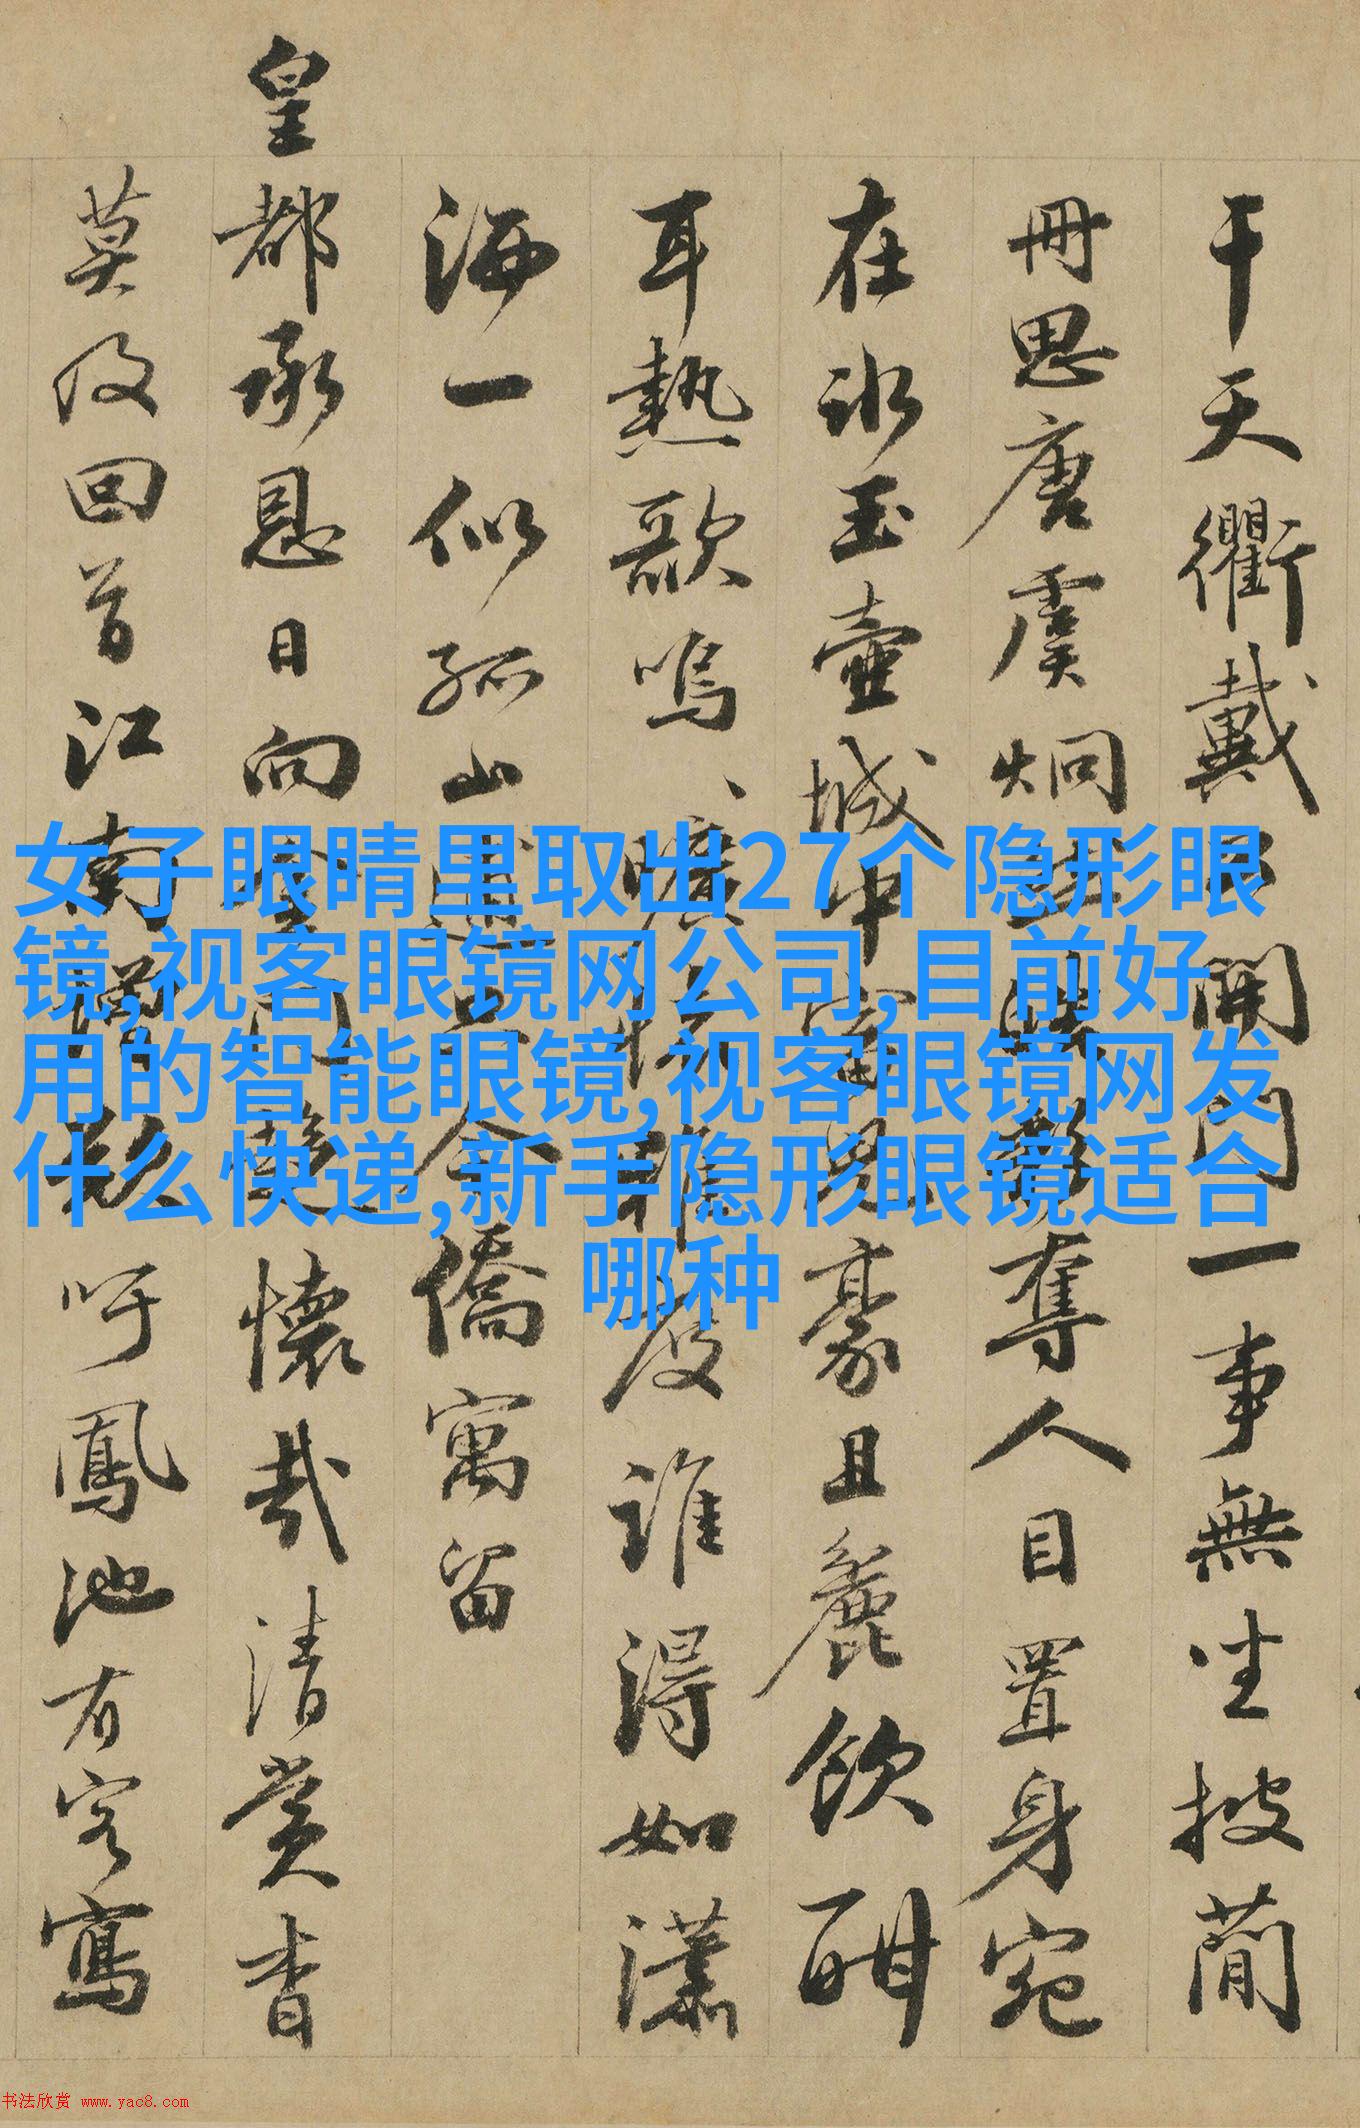 干天衢戴口開門一事無坐披蕳
冊思唐虞炯奪人目置身宛
在冰玉壺城中豪且麗飲酣
耳熱歌嗚曠誰度誰得如瀟
洒一似孤山今僑寓留
皇都承恩日向懷哉清賞杏
莫及回首江南吁鳳池有客寫
女子眼睛里取出27个隐形眼
镜,视客眼镜网公司,目前好
用的智能眼镜,视客眼镜网发
什么快递,新手隐形眼镜适合
哪种
书法欣赏 www.yac8.com